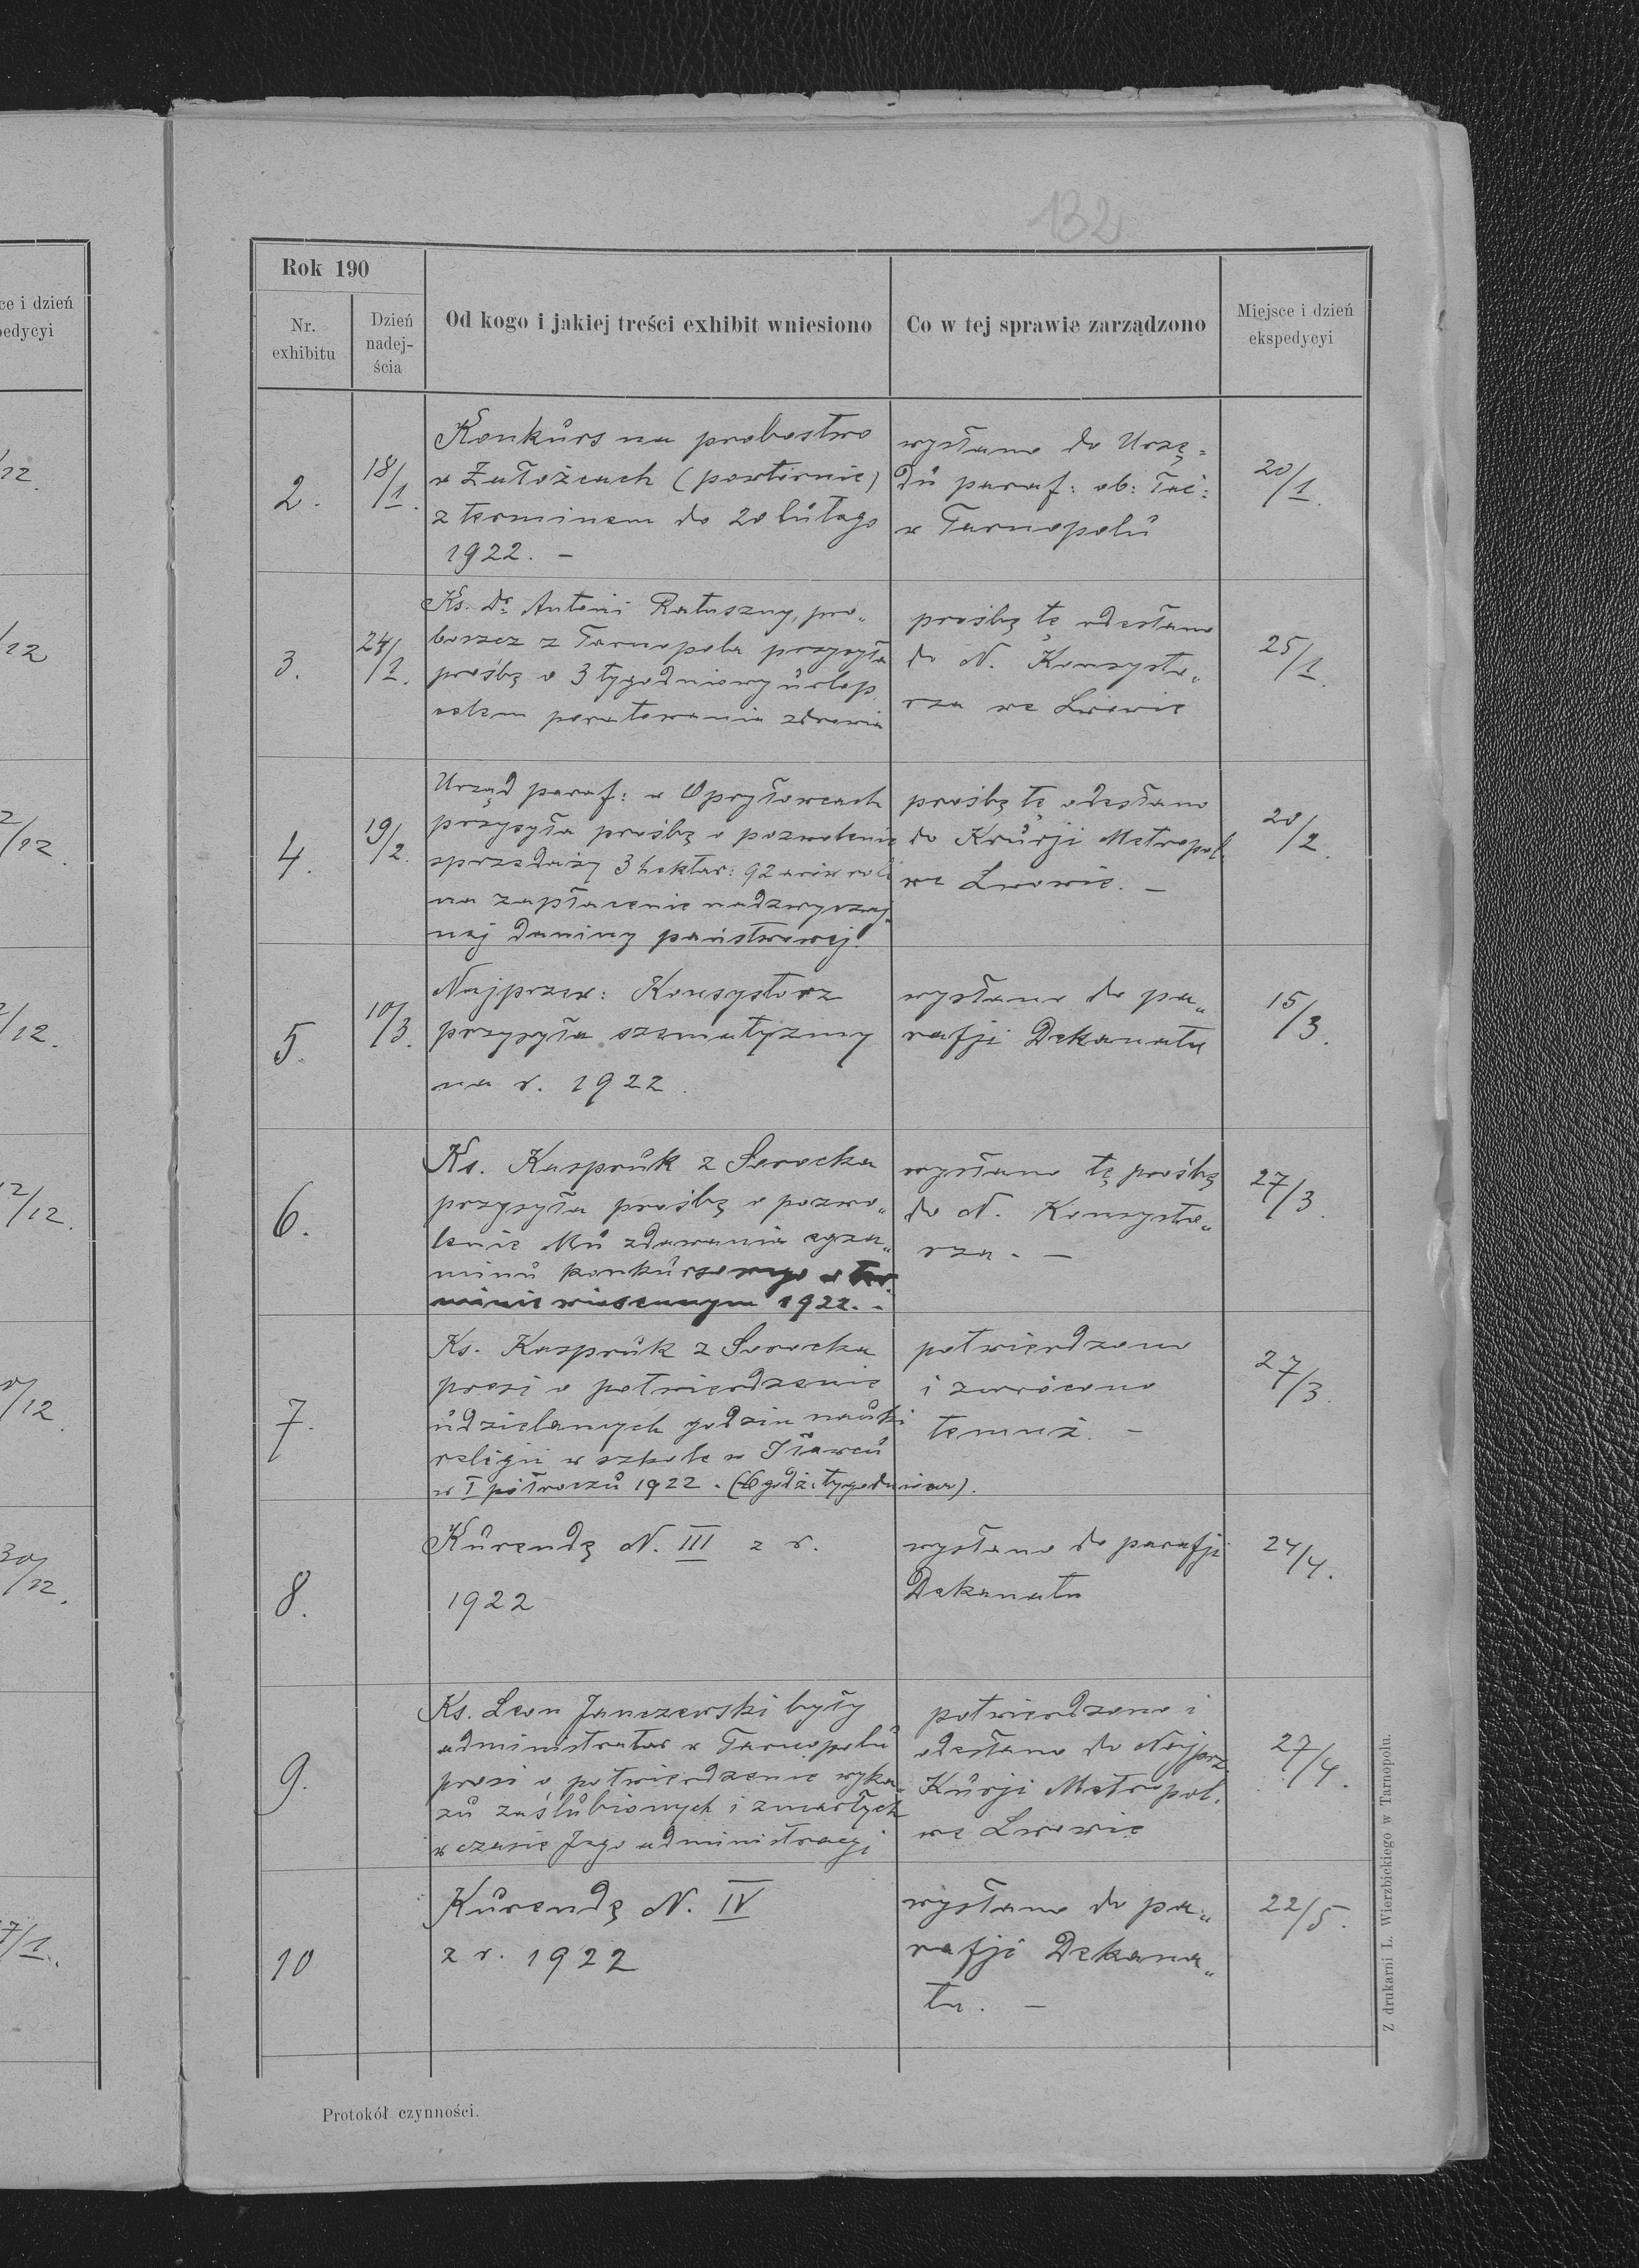 132
Rok 190
Nr. exhibitu
Dzień nadej-ścia
Od kogo i jakiej treści exhibit wniesiono
Co w tej sprawie zarządzono
Miejsce i dzień ekspedycyi
ce i dzień
pedycyi
2.
18/1.
Konkurs na probostwo
w Załoźcach (powtórnie)
z terminem do 20 lutego
1922. –
wysłano do Urzę=
du paraf: ob: łac:
w Tarnopolu
20/1.
3.
24/1.
Ks. Dr. Antoni Ratuszny, pro„
boszcz z Tarnopola przysyła
prośbę o 3 tygodniowy urlop
celem poratowania zdrowia
prośbę tę odesłano
do N. Konsysto„
rza we Lwowie
25/1.
4.
19/2.
Urząd paraf: w Opryłowcach
przysyła prośbę o pozwolenie
sprzedaży 3 hektar: 92 arów roli
na zapłacenie nadzwyczaj„
nej daniny państwowej.
prośbę tę odesłano
do Krurji Metropol.
we Lwowie. –
20/2.
5.
10/3.
Najprzew: Konsystorz
przysyła szematyzmy
na r. 1922.
wysłano do pa„
rafji Dekanatu
15/3.
6.
Ks. Kaspruk z Serocka
przysyła prośbę o pozwo„
lenie Mu zdawania egza„
minu konkursowego w ter„
minie wiosennym 1922. –
wysłano tę prośbę
do N. Konsysto„
rza. –
27/3.
7.
Ks. Kaspruk z Serocka
prosi o potwierdzenie
udzielanych godzin nauki
religii w szkole w Iławcu
w I półroczu 1922. (6 godz: tygodniowo).
potwierdzono
i zwrócono
temuż. –
27/3.
8.
Kurendę N. III z r.
1922
wysłano do parafji
Dekanatu
24/4.
9.
Ks. Leon Janczewski były
administrator w Tarnopolu
prosi o potwierdzenie wyka„
zu zaślubionych i zmarłych
w czasie Jego administracji
potwierdzono i
odesłano do Najprz.
Kurji Metropol.
we Lwowie
27/4.
10
Kurendę N. IV
z r. 1922
wysłano do pa„
rafji Dekana„
tu. –
22/5.
Protokół czynności.
Z drukarni L. Wierzbickiego w Tarnopolu.